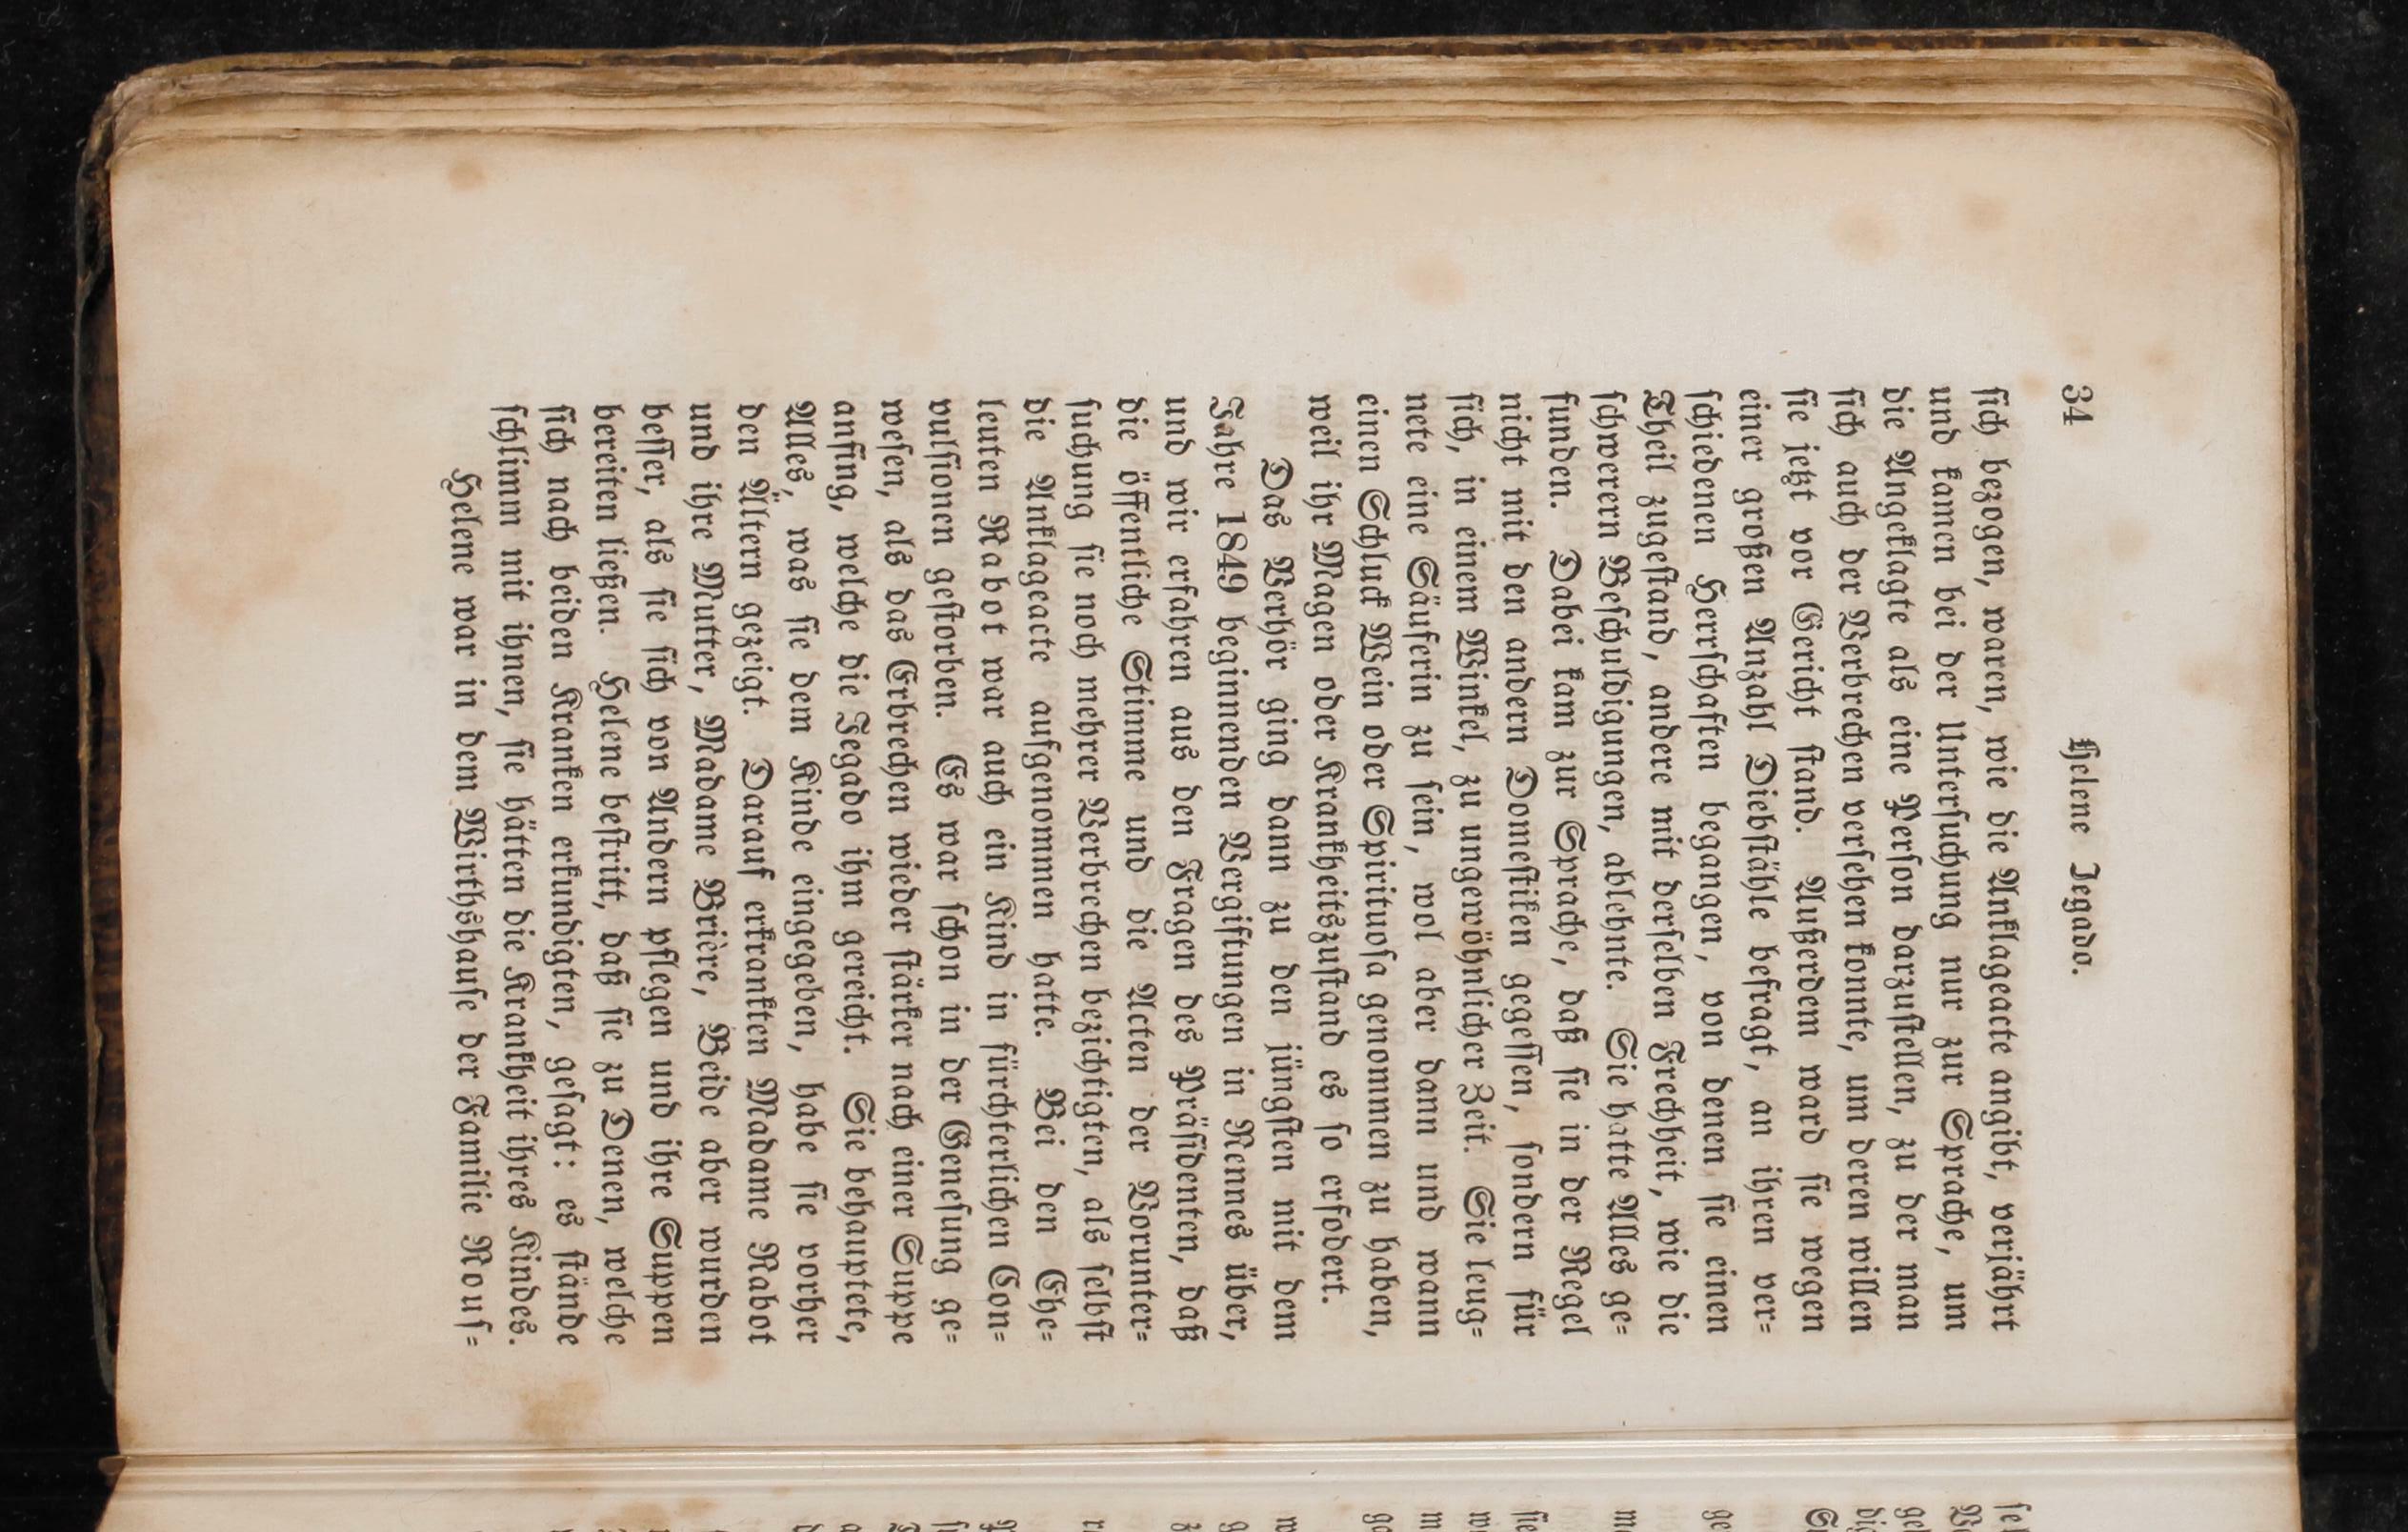 34 Helene Jegado.
sich bezogen, waren, wie die Anklageacte angibt, verjährt
und kamen bei der Untersuchung nur zur Sprache, um
die Angeklagte als eine Person darzustellen, zu der man
sich auch der Verbrechen versehen konnte, um deren willen
sie jetzt vor Gericht stand. Außerdem ward sie wegen
einer großen Anzahl Diebstähle befragt, an ihren ver-
schiedenen Herrschaften begangen, von denen sie einen
Theil zugestand, andere mit derselben Frechheit, wie die
schwerern Beschuldigungen, ablehnte. Sie hatte Alles ge-
funden. Dabei kam zur Sprache, daß sie in der Regel
nicht mit den andern Domestiken gegessen, sondern für
sich, in einem Winkel, zu ungewöhnlicher Zeit. Sie leug-
nete eine Säuferin zu sein, wol aber dann und wann
einen Schluck Wein oder Spirituosa genommen zu haben,
weil ihr Magen oder Krankheitszustand es so erfodert.
Das Verhör ging dann zu den jüngsten mit dem
Jahre 1849 beginnenden Vergiftungen in Rennes über,
und wir erfahren aus den Fragen des Präsidenten, daß
die öffentliche Stimme und die Acten der Vorunter-
suchung sie noch mehrer Verbrechen bezichtigten, als selbst
die Anklageacte aufgenommen hatte. Bei den Ehe-
leuten Rabot war auch ein Kind in fürchterlichen Con-
vulsionen gestorben. Es war schon in der Genesung ge-
wesen, als das Erbrechen wieder stärker nach einer Suppe
anfing, welche die Jegado ihm gereicht. Sie behauptete,
Alles, was sie dem Kinde eingegeben, habe sie vorher
den Ältern gezeigt. Darauf erkrankten Madame Rabot
und ihre Mutter, Madame Brière, Beide aber wurden
besser, als sie sich von Andern pflegen und ihre Suppen
bereiten ließen. Helene bestritt, daß sie zu Denen, welche
sich nach beiden Kranken erkundigten, gesagt: es stände
schlimm mit ihnen, sie hätten die Krankheit ihres Kindes.
Helene war in dem Wirthshause der Familie Rous-